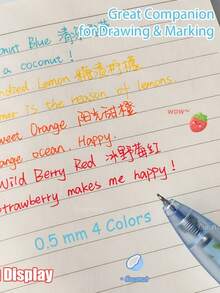 Great Companion
for Drawing & Marking
onut Blue 清
a coconut!
ndied Lemon 糖渍柠檬
mer is the reason of lemons.
weet Orange 阳光甜橙
ange ocean. Happy.
Wild Berry Red 冰野莓红
trawberry makes me happy!
WOW~
0.5 mm 4 Colors
Display